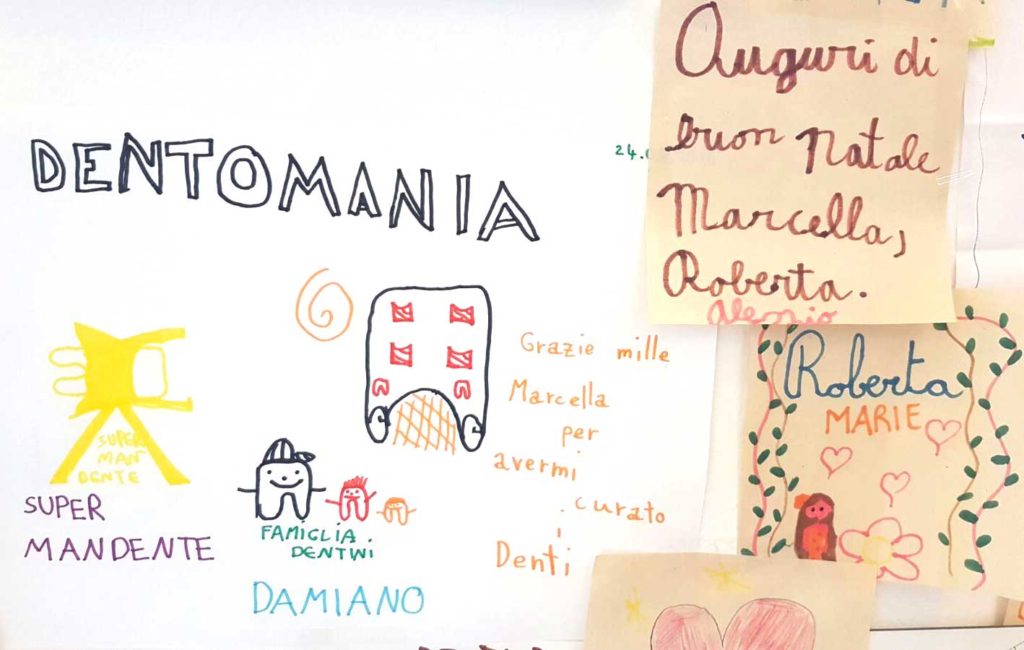 DENTOMANIA
24.
SUPER
MAN
DENTE
SUPER
MANDENTE
FAMIGLIA.
DENTINI
DAMIANO
Grazie mille
Marcella
per
avermi
curato
i
Denti
Auguri di
buon Natale
Marcella,
Roberta.
Alessio
Roberta
MARIE